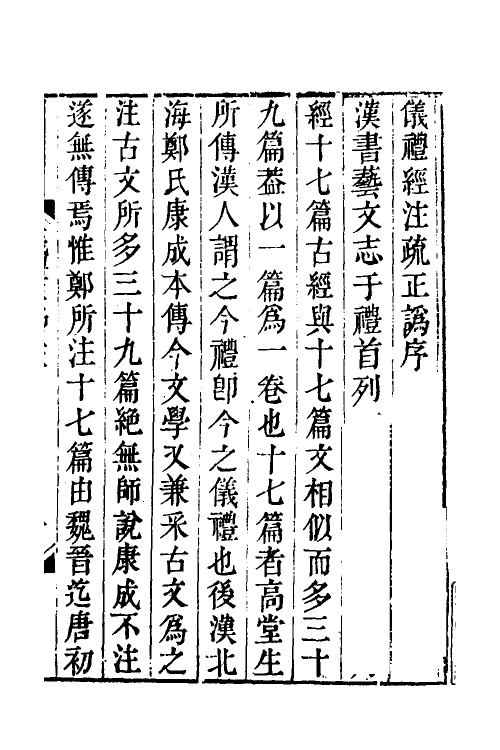 儀禮經注疏正譌序
漢書藝文志于禮首列
經十七篇古經與十七篇文相似而多三十
九篇葢以一篇爲一卷也十七篇者高堂生
所傳漢人謂之今禮卽今之儀禮也後漢北
海鄭氏康成本傳今文學又兼采古文爲之
注古文所多三十九篇絶無師說康成不注
遂無傳焉惟鄭所注十七篇由魏晉迄唐初